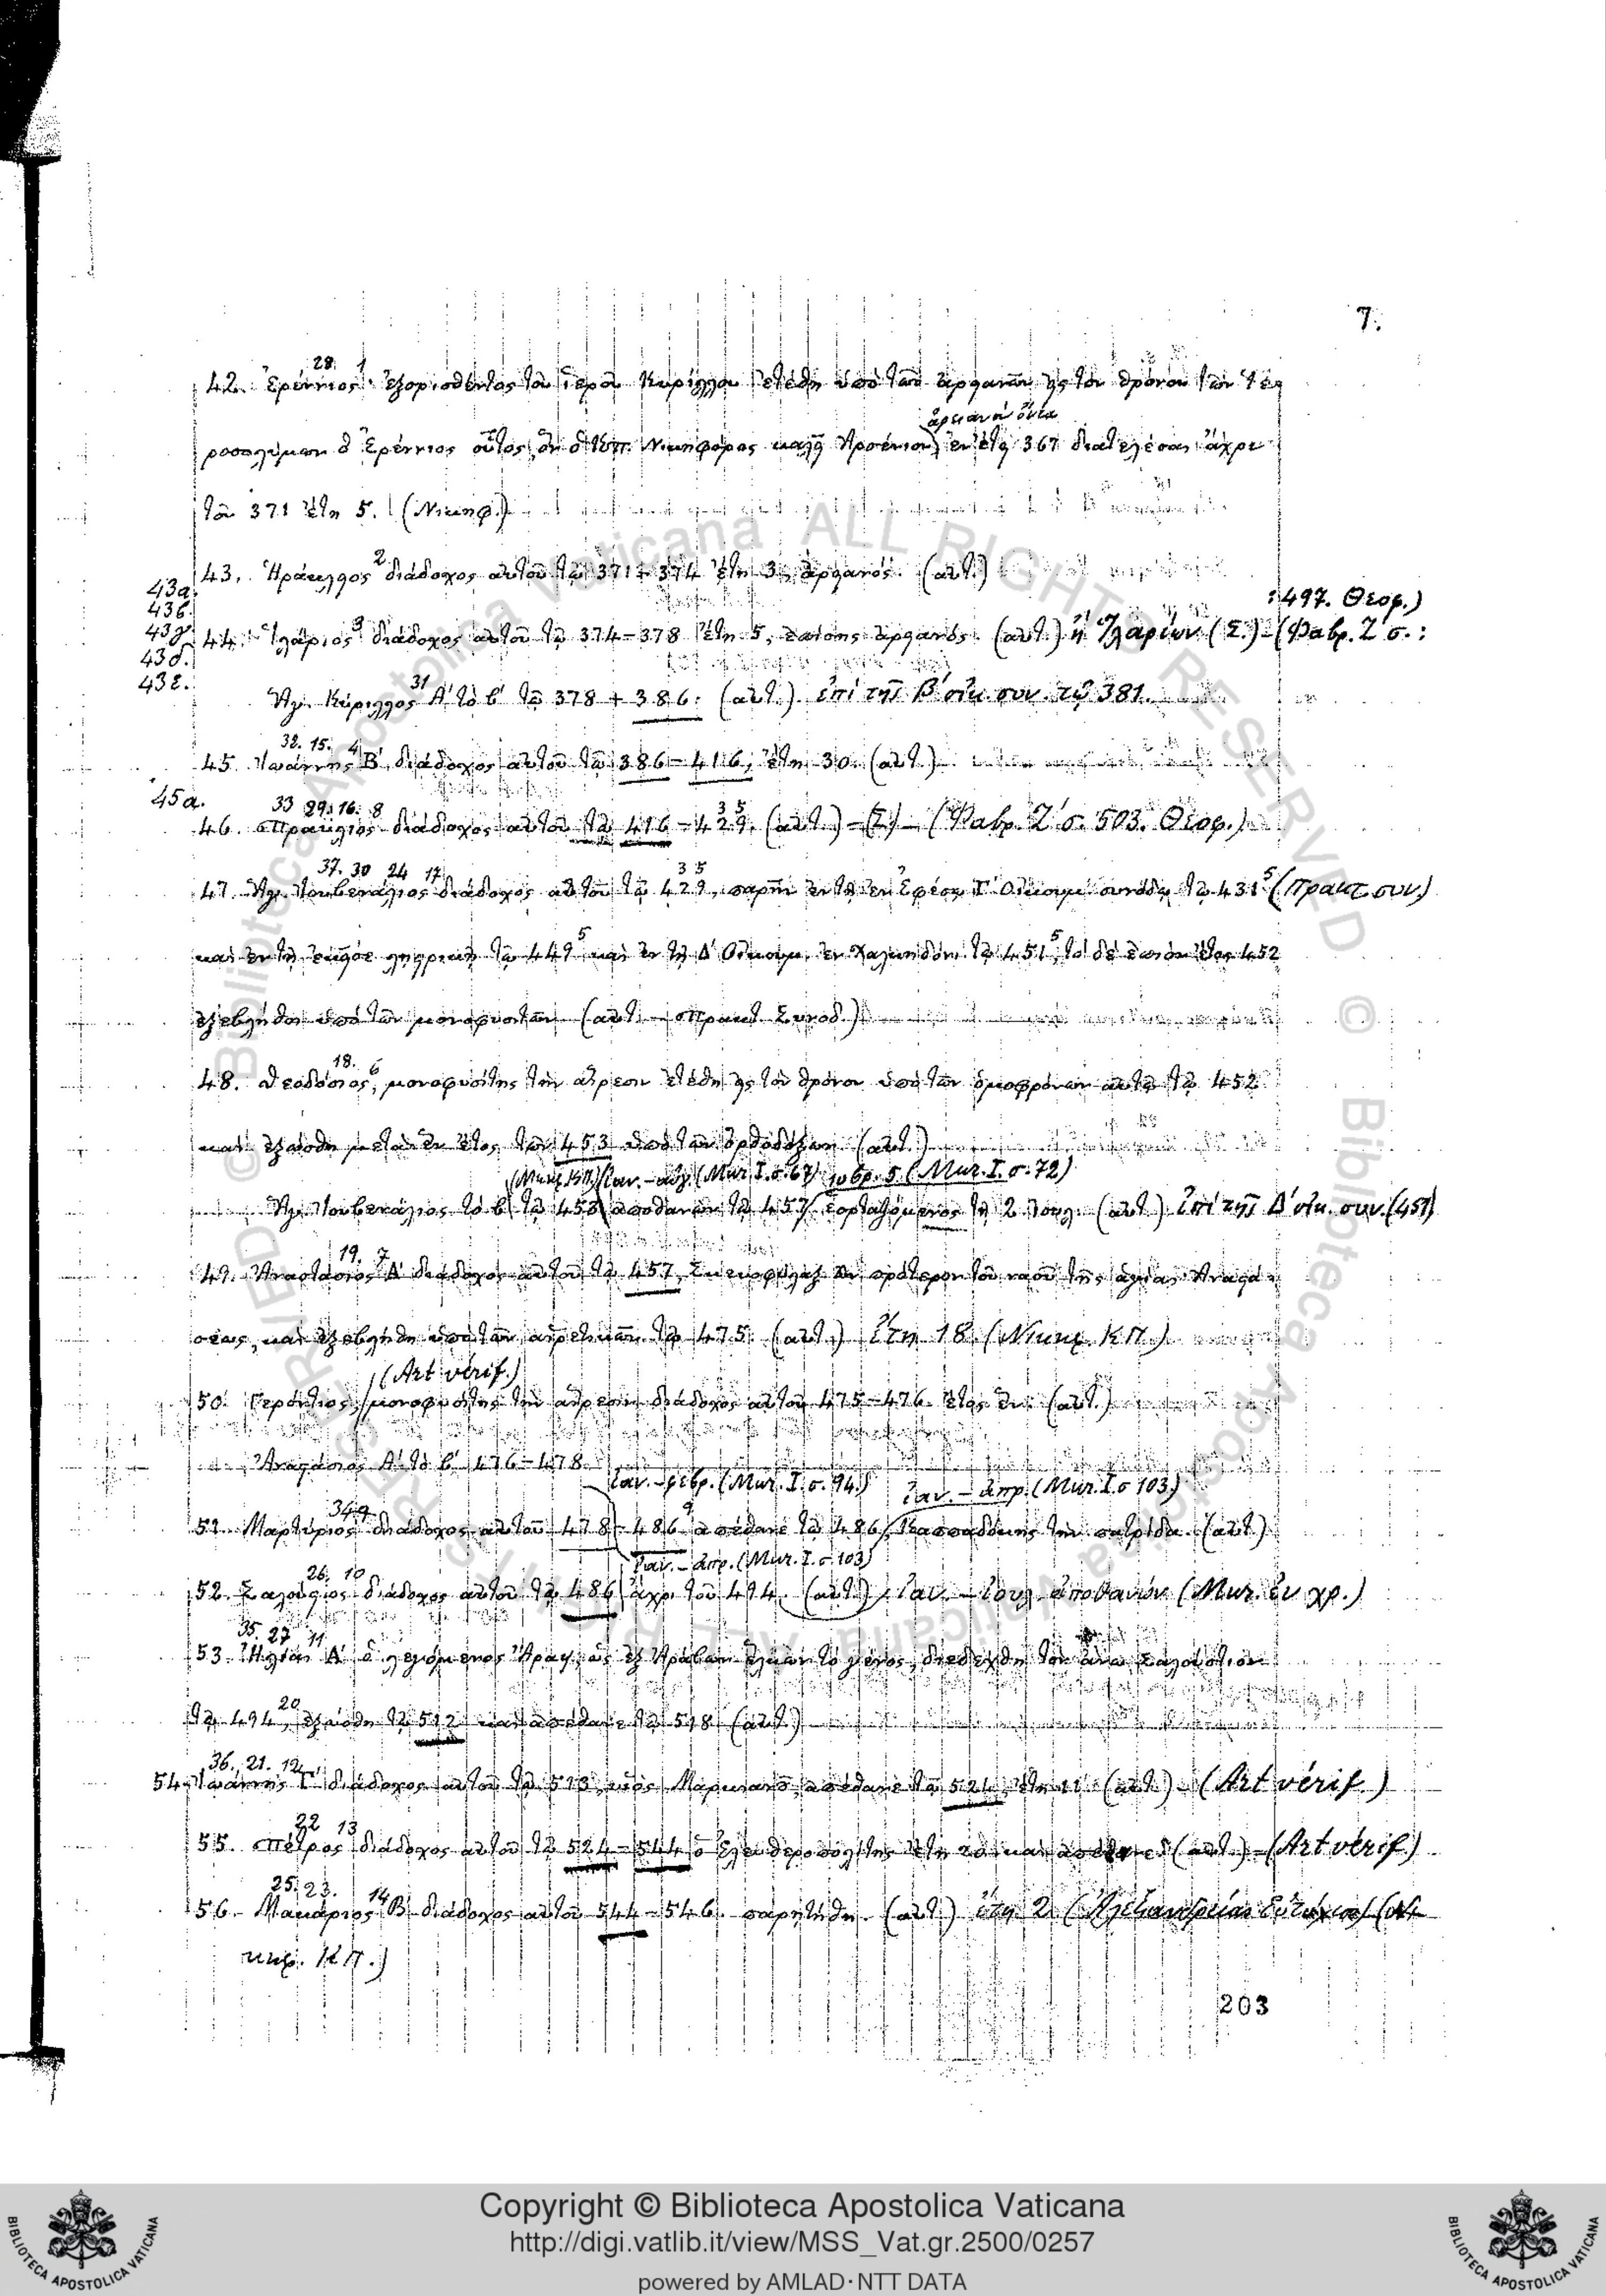 7.
28. 1
42. Ἐρέννιος ἐξορισθέντος τοῦ ἱεροῦ Κυρίλλου ἐτέθη ὑπὸ τῶν ἀρειανῶν εἰς τὸν θρόνον τῶν Ἱε
ἀρειανὸν ὄντα
ροσολύμων ὁ Ἐρέννιος οὗτος, ὃν ὁ Νικηφόρος καλεῖ Ἀρσένιον ἐν ἔτει 367 διατελέσας ἄχρι
τοῦ 371 ἔτη 5. (Νικηφ.)
43. Ἡράκλιος 2 διάδοχος αὐτοῦ τῷ 371–374 ἔτη 3, ἀρειανός. (αὐτ.)
43α.
43β.
43γ.
43δ.
43ε.
: 497. Θεοφ.)
44. Ἱλάριος 3 διάδοχος αὐτοῦ τῷ 374–378 ἔτη 5, ἐπίσης ἀρειανός. (αὐτ.) ἢ Ἱλαρίων (Σ.) – (Φαβρ. Ζ΄ σ. :
Ἅγ. Κύριλλος 31 Α΄ τὸ β΄ τῷ 378 + 386. (αὐτ.) ἐπὶ τῆς Β΄ οἰκ. συν. τῷ 381.
32. 15. 4
45. Ἰωάννης Β΄, διάδοχος αὐτοῦ τῷ 386–416, ἔτη 30. (αὐτ.)
45α.
33 29. 16. 8
46. Πραΰλιος διάδοχος αὐτοῦ τῷ 416–429. (αὐτ.) – (Σ) – (Φαβρ. Ζ΄ σ. 503. Θεοφ.)
37. 30 24 17
47. Ἅγ. Ἰουβενάλιος διάδοχος αὐτοῦ τῷ 429, παρῆν ἐν τῇ ἐν Ἐφέσῳ Γ΄ Οἰκουμ. συνόδῳ τῷ 431 5 (Πρακτ. συν.)
καὶ ἐν τῇ ἐκεῖσε λῃστρικῇ τῷ 449 5 καὶ ἐν τῇ Δ΄ Οἰκουμ. ἐν Χαλκηδόνι τῷ 451 5, τὸ δὲ ἐπιὸν ἔτος 452
ἐξεβλήθη ὑπὸ τῶν μονοφυσιτῶν (αὐτ. – Πρακτ. Συνοδ.)
18. 6
48. Θεοδόσιος, μονοφυσίτης τὴν αἵρεσιν ἐτέθη εἰς τὸν θρόνον ὑπὸ τῶν ὁμοφρόνων αὐτῷ τῷ 452
καὶ ἐξώσθη μετὰ ἓν ἔτος τῷ 453 ὑπὸ τῶν ὀρθοδόξων (αὐτ.)
(Νικηφ. ΚΠ) Ἰαν. – αὐγ. (Mur. I. σ. 67) νοβρ. 5. (Mur. I. σ. 72)
Ἅγ. Ἰουβενάλιος τὸ β΄ τῷ 453 ἀποθανὼν τῷ 457 ἑορταζόμενος τῇ 2 Ἰουλ. (αὐτ.) ἐπὶ τῆς Δ΄ οἰκ. συν. (451)
19. 7
49. Ἀναστάσιος Α΄ διάδοχος αὐτοῦ τῷ 457, σκευοφύλαξ ὢν πρότερον τοῦ ναοῦ τῆς ἁγίας Ἀναστά
σεως, καὶ ἐξεβλήθη ὑπὸ τῶν αἱρετικῶν τῷ 475. (αὐτ.) ἔτη 18. (Νικηφ. ΚΠ.)
(Art vérif.)
50. Γερόντιος, μονοφυσίτης τὴν αἵρεσιν διάδοχος αὐτοῦ 475–476. ἔτος ἕν. (αὐτ.)
Ἀναστάσιος Α΄ τὸ β΄ 476–478
Ἰαν. – φεβρ. (Mur. I. σ. 94.) Ἰαν. – ἀπρ. (Mur. I. σ 103)
34 9
51. Μαρτύριος διάδοχος αὐτοῦ 478–486 ἀπέθανε τῷ 486 Καππαδόκης τὴν πατρίδα. (αὐτ.)
Ἰαν. – ἀπρ. (Mur. I. σ. 103)
26. 10
52. Σαλούστιος διάδοχος αὐτοῦ τῷ 486 ἄχρι τοῦ 494. (αὐτ.) Ἰαν. – Ἰουλ. ἀποθανών (Mur. ἐν χρ.)
35. 27 11
53. Ἠλίας Α΄ ὁ λεγόμενος Ἄραψ, ὡς ἐξ Ἀράβων ἕλκων τὸ γένος, διεδέχθη τὸν ἄνω Σαλούστιον
τῷ 494 20, ἐξώσθη τῷ 512 καὶ ἀπέθανε τῷ 518 (αὐτ.)
36. 21. 12
54. Ἰωάννης Γ΄ διάδοχος αὐτοῦ τῷ 513, υἱὸς Μαρκιανοῦ, ἀπέθανε τῷ 524, ἔτη 11. (αὐτ.) – (Art vérif.)
22 13
55. Πέτρος διάδοχος αὐτοῦ τῷ 524–544 ὁ Ἐλευθεροπολίτης ἔτη 20 καὶ ἀπέθανε (αὐτ.) – (Art vérif.)
25. 23. 14
56. Μακάριος Β΄ διάδοχος αὐτοῦ 544–546. παρῃτήθη. (αὐτ.) ἔτη 2. (Ἀλεξανδρείας Εὐτύχιος) (Νι
κηφ. ΚΠ.)
203
Copyright © Biblioteca Apostolica Vaticana
http://digi.vatlib.it/view/MSS_Vat.gr.2500/0257
powered by AMLAD·NTT DATA